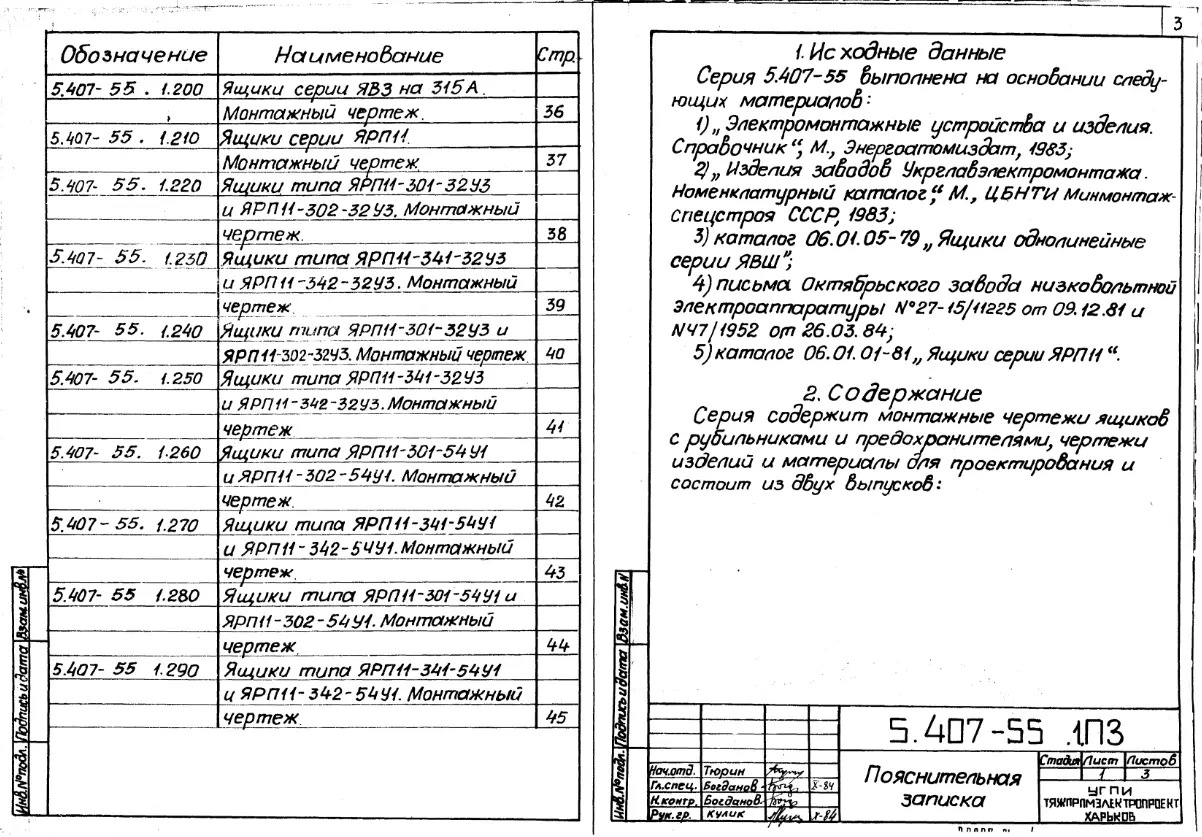 Обозначение Наименование Стр.
5.407-55 . 1.200 Ящики серии ЯВЗ на 315А.
Монтажный чертеж. 36
5.407-55 . 1.210 Ящики серии ЯРП11.
Монтажный чертеж 37
5.407-55. 1.220 Ящики типа ЯРП11-301-32У3
и ЯРП11-302-32У3. Монтажный
чертеж. 38
5.407-55. 1.230 Ящики типа ЯРП11-341-32У3
и ЯРП11-342-32У3. Монтажный
чертеж 39
5.407-55. 1.240 Ящики типа ЯРП11-301-32У3 и
ЯРП11-302-32У3. Монтажный чертеж 40
5.407-55. 1.250 Ящики типа ЯРП11-341-32У3
и ЯРП11-342-32У3. Монтажный
чертеж 41
5.407-55. 1.260 Ящики типа ЯРП11-301-54У1
и ЯРП11-302-54У1. Монтажный
чертеж. 42
5.407-55. 1.270 Ящики типа ЯРП11-341-54У1
и ЯРП11-342-54У1. Монтажный
чертеж. 43
5.407-55 1.280 Ящики типа ЯРП11-301-54У1 и
ЯРП11-302-54У1. Монтажный
чертеж. 44
5.407-55 1.290 Ящики типа ЯРП11-341-54У1
и ЯРП11-342-54У1. Монтажный
чертеж. 45
Инв.№подл. Подпись и дата Взам.инв.№
3
1. Исходные данные
Серия 5.407-55 выполнена на основании следу-
ющих материалов:
1) „Электромонтажные устройства и изделия.
Справочник“, М., Энергоатомиздат, 1983;
2) „Изделия заводов Укрглавэлектромонтажа.
Номенклатурный каталог“ М., ЦБНТИ Минмонтаж-
спецстроя СССР, 1983;
3) каталог 06.01.05-79 „Ящики однолинейные
серии ЯВШ“;
4) письма Октябрьского завода низковольтной
электроаппаратуры №27-15/11225 от 09.12.81 и
№47/1952 от 26.03.84;
5) каталог 06.01.01-81 „Ящики серии ЯРП11“.
2. Содержание
Серия содержит монтажные чертежи ящиков
с рубильниками и предохранителями, чертежи
изделий и материалы для проектирования и
состоит из двух выпусков:
Инв.№подл. Подпись и дата Взам.инв.№
5.407-55 .1ПЗ
Нач.отд. Тюрин
Гл.спец. Богданов X-84
Н.контр. Богданов
Рук.гр. Кулик X-84
Пояснительная
записка
Стадия Лист Листов
1 3
УГПИ
ТЯЖПРОМЭЛЕКТРОПРОЕКТ
ХАРЬКОВ